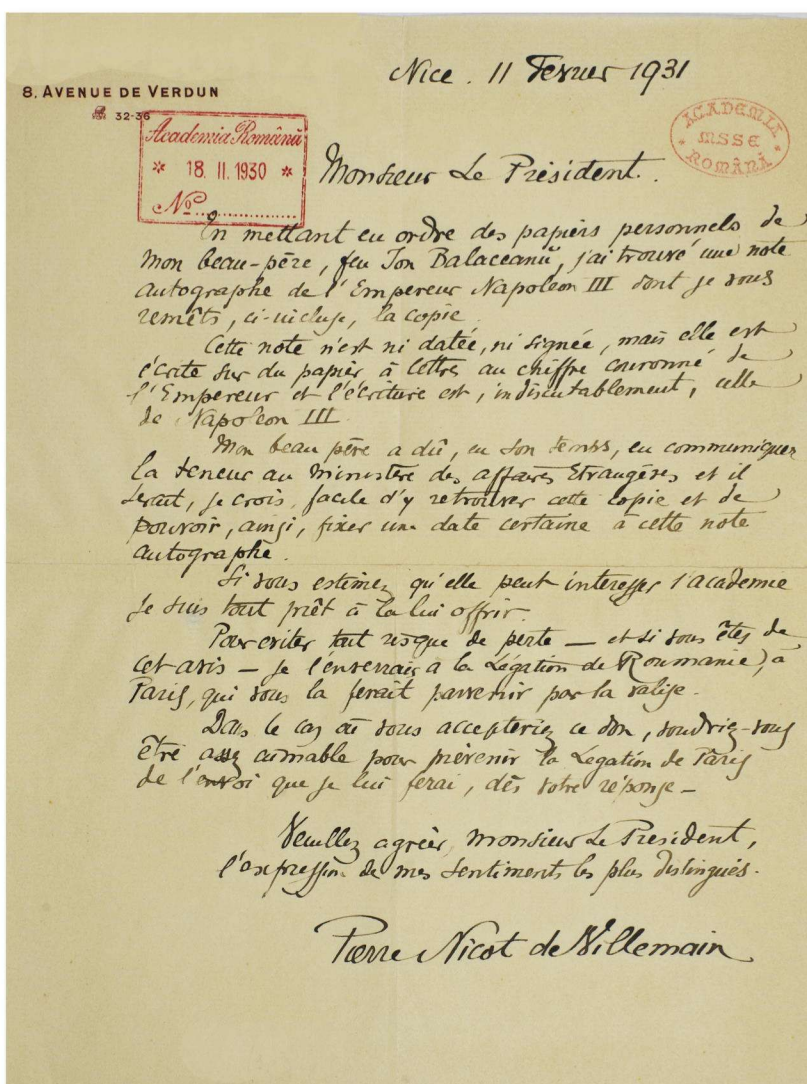 Nice. 11 Fevrier 1931
8. AVENUE DE VERDUN
32-36
Academia Română
* 18. II. 1930 *
No
ACADEMIA
MSSE
ROMÂNĂ
Monsieur Le Président.
En mettant en ordre des papiers personnels de
mon beau-père, feu Ion Balaceanŭ, j'ai trouvé une note
autographe de l'Empereur Napoléon III dont je vous
remêts, ci-incluse, la copie.
Cette note n'est ni datée, ni signée, mais elle est
écrite sur du papier à lettres au chiffre couronné de
l'Empereur et l'écriture est, indiscutablement, celle
de Napoléon III
Mon beau père a dû, en son temps, en communiquer
la teneur au Ministère des affaires Etrangères et il
serait, je crois, facile d'y retrouver cette copie et de
pouvoir, ainsi, fixer une date certaine à cette note
autographe.
Si vous estimez qu'elle peut intéresser l'academie
je suis tout prêt à la lui offrir.
Pour eviter tout risque de perte — et si vous êtes de
cet avis — je l'enverrai à la Légation de Roumanie, à
Paris, qui vous la ferait parvenir par la valise.
Dans le cas où vous accepteriez ce don, voudriez-vous
être assez aimable pour prévenir la Légation de Paris
de l'envoi que je lui ferai, dès votre réponse —
Veuillez agréer, Monsieur Le President,
l'expression de mes sentiments les plus distingués.
Pierre Nicot de Villemain